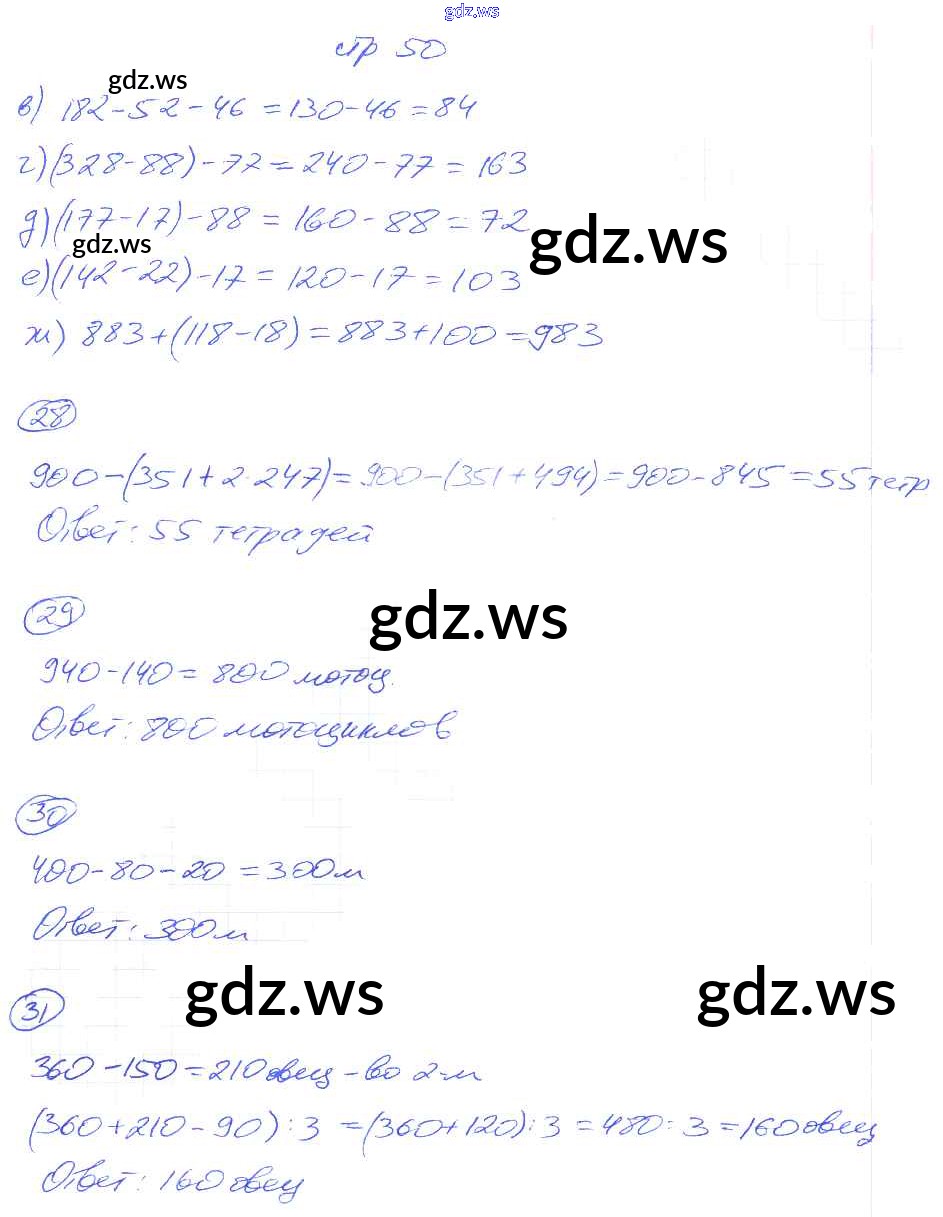 gdz.ws
стр 50
gdz.ws
в) 182-52-46=130-46=84
г)(328-88)-77=240-77=163
д)(177-17)-88=160-88=72
gdz.ws
gdz.ws
е)(142-22)-17=120-17=103
ж) 883+(118-18)=883+100=983
28
900-(351+2·247)=900-(351+494)=900-845=55тетр
Ответ: 55 тетрадей
29
gdz.ws
940-140=800 мотоц.
Ответ: 800 мотоциклов
30
400-80-20=300м
Ответ: 300м
gdz.ws
gdz.ws
31
360-150=210 овец-во 2-м
(360+210-90):3=(360+120):3=480:3=160 овец
Ответ: 160 овец